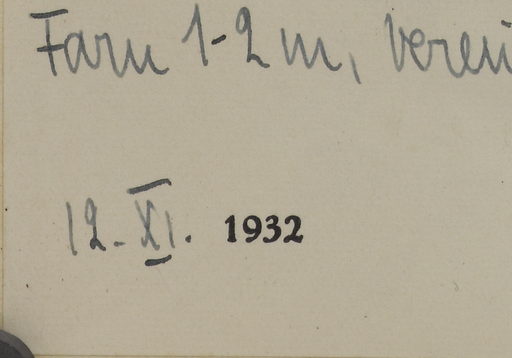 Farn 1-2 m,
12. XI. 1932